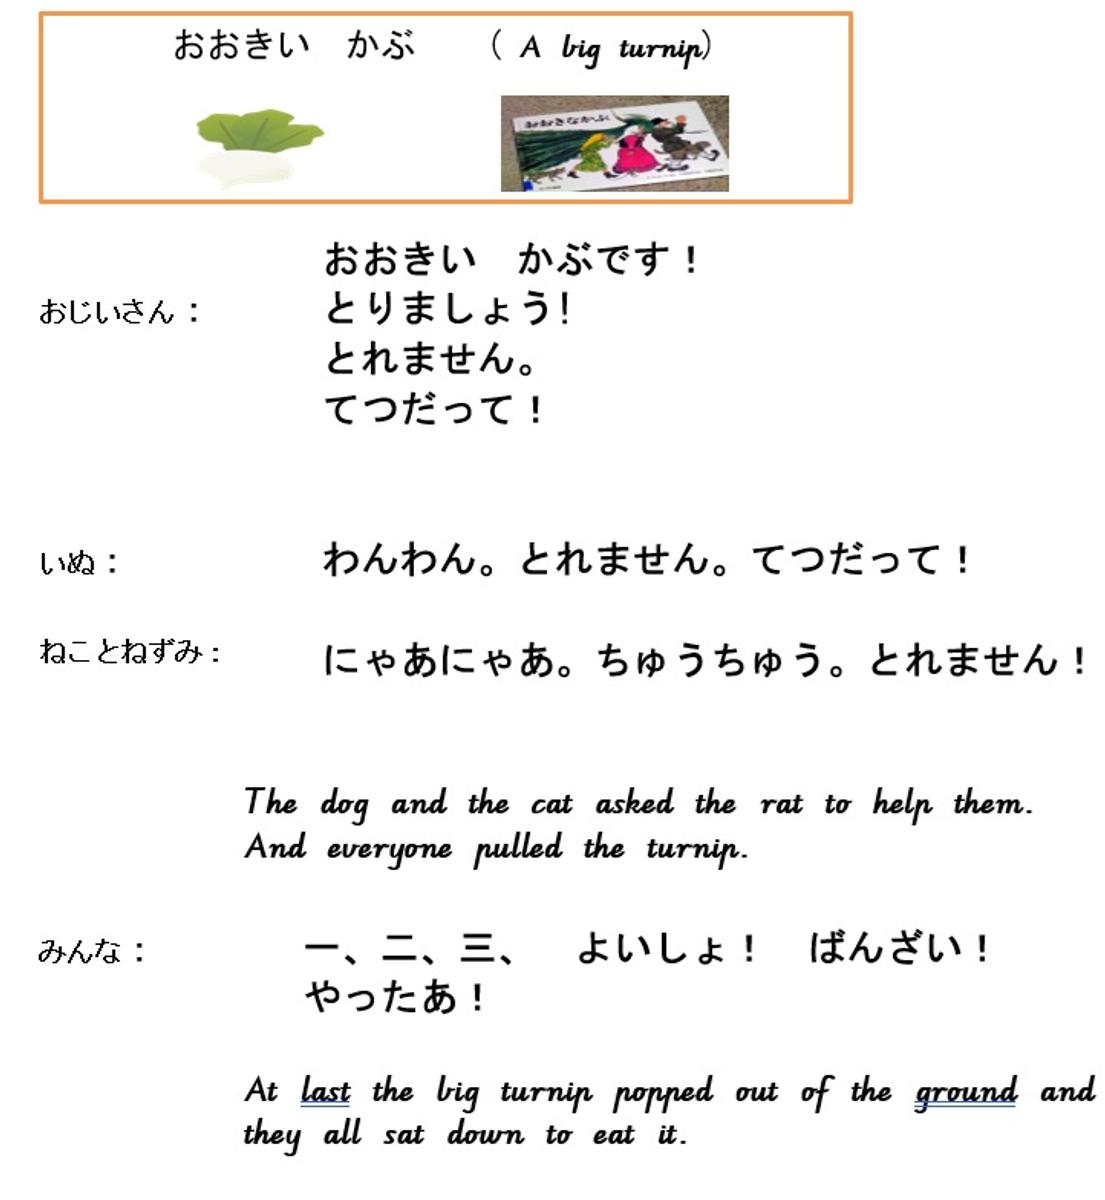 おおきい　かぶ　　( A big turnip)
おおきなかぶ
おおきい　かぶです！
おじいさん：　とりましょう!
とれません。
てつだって！
いぬ：　わんわん。とれません。てつだって！
ねことねずみ：　にゃあにゃあ。ちゅうちゅう。とれません！
The dog and the cat asked the rat to help them.
And everyone pulled the turnip.
みんな：　一、二、三、　よいしょ！　ばんざい！
やったあ！
At last the big turnip popped out of the ground and
they all sat down to eat it.